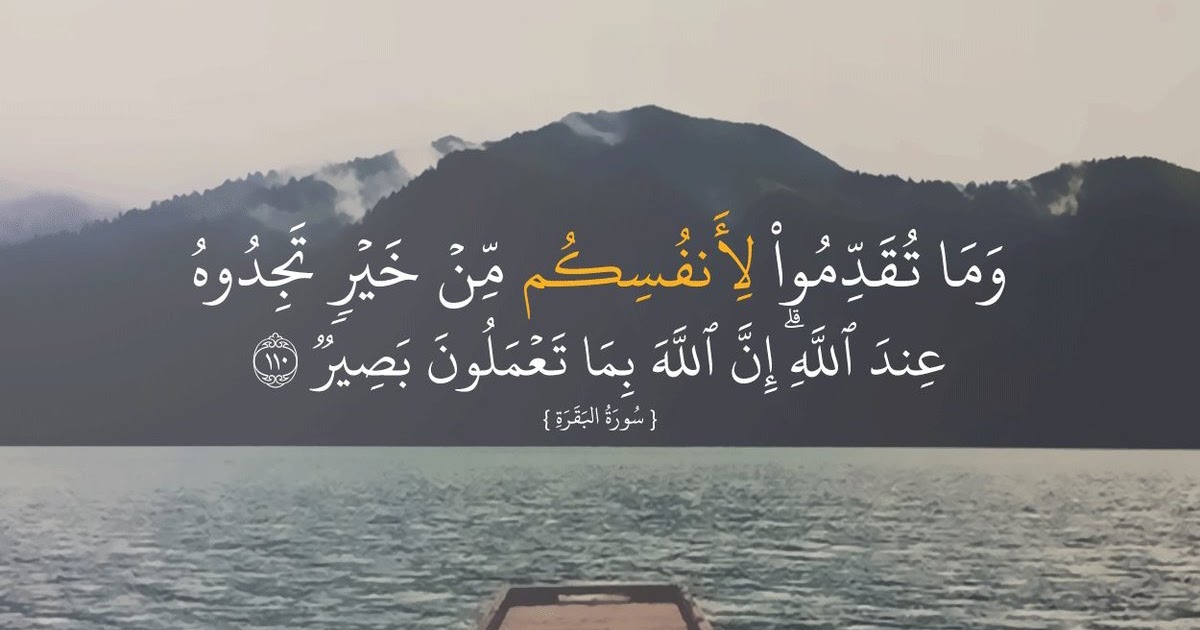 وَمَا تُقَدِّمُوا۟ لِأَنفُسِكُم مِّنۡ خَيۡرٍ تَجِدُوهُ
عِندَ ٱللَّهِۗ إِنَّ ٱللَّهَ بِمَا تَعۡمَلُونَ بَصِيرٌ ١١٠
{ سُورَةُ البَقَرَةِ }